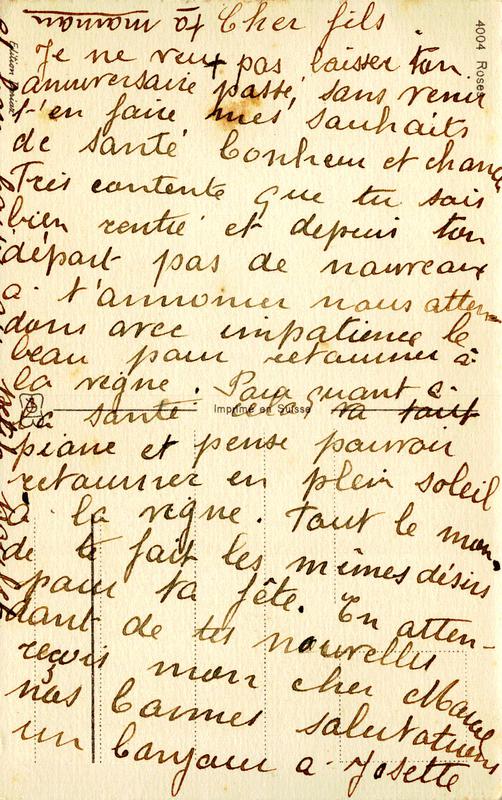 Cher fils
Je ne veux pas laisser ton
anniversaire passé, sans venir
t'en faire mes souhaits
de santé bonheur et chance
Très contente que tu sois
bien rentré et depuis ton
départ pas de nouveaux
a t'annoncer nous atten-
dons avec impatience le
beau pour retourner à
la vigne. Papa quant à
la santé va tout
piane et pense pouvoir
retourner en plein soleil
à la vigne. Tout le mon-
de te fait les mêmes désirs
pour ta fête. En atten-
dant de tes nouvelles
reçois mon cher Marcel
nos bonnes salutations
un bonjour a Josette
ta maman
4004 Roses
Imprimé en Suisse
Edition